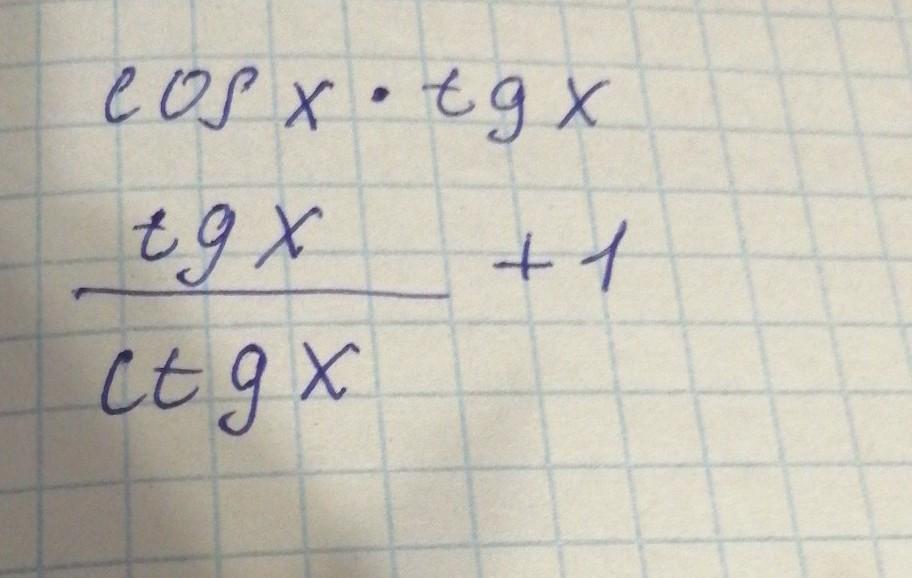 cos x · tg x
tg x
——— + 1
ctg x